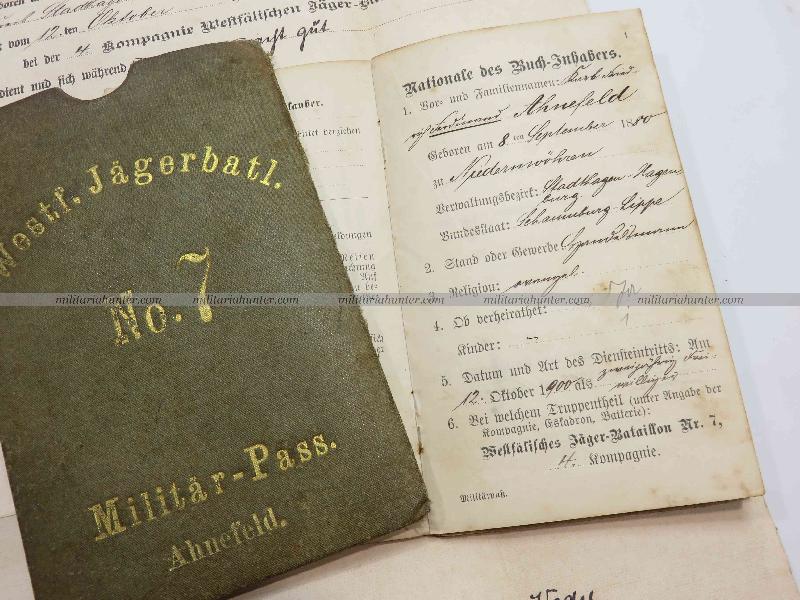 Stadthagen
vom 12.ten Oktober
bei der 4. Kompagnie Westfälischen Jäger-
dient und sich während
gut
Westf. Jägerbatl.
No. 7
Militär-Pass.
Ahnefeld.
1
Nationale des Buch-Inhabers.
1. Vor- und Familiennamen: Kurt
Ferdinand Ahnefeld
Geboren am 8 ten September 1880
zu Niedernwöhren
Verwaltungsbezirk: Stadthagen-Hagen
burg
Bundesstaat: Schaumburg-Lippe
2. Stand oder Gewerbe:
3. Religion: evangel.
4. Ob verheirathet:
Kinder:
5. Datum und Art des Diensteintritts: Am
12. Oktober 1900 als zweijährig Frei-
williger
6. Bei welchem Truppentheil (unter Angabe der
Kompagnie, Eskadron, Batterie):
Westfälisches Jäger-Bataillon Nr. 7,
4. Kompagnie.
Militärpaß.
militariahunter.com militariahunter.com militariahunter.com militariahunter.com militariahunter.com